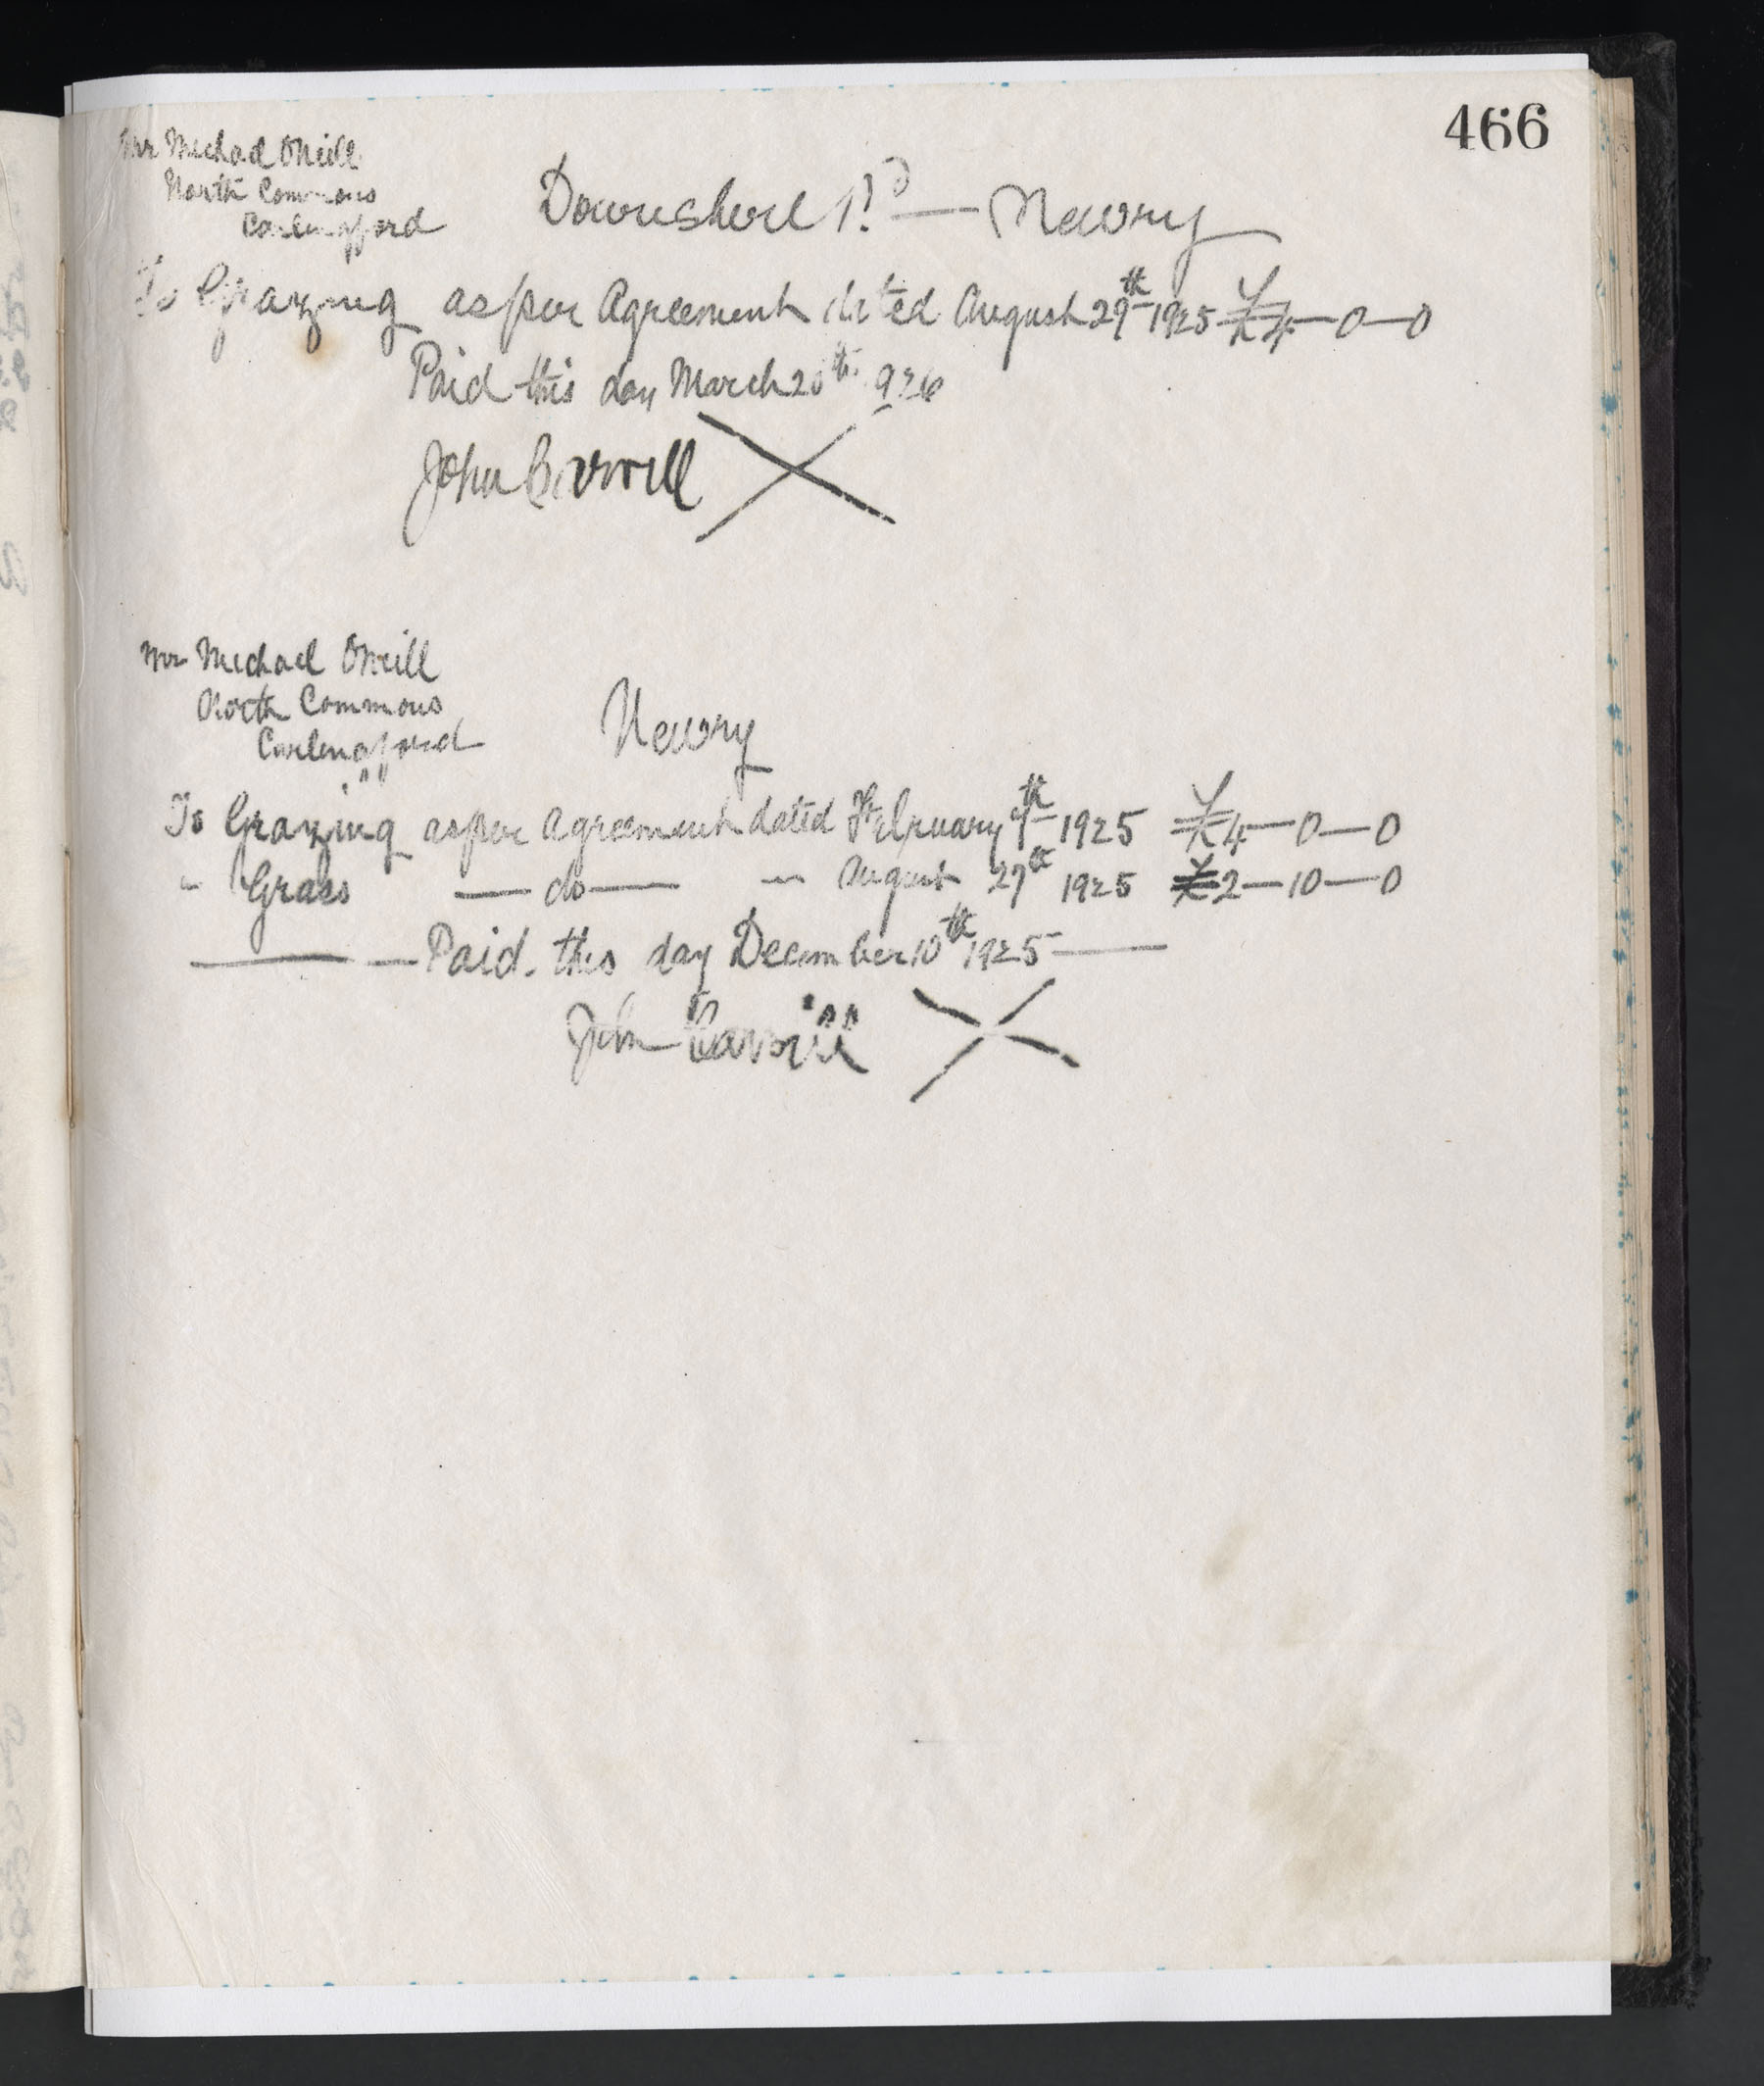 466
Mr Michael ONeill
North Commons
Carlingford
Downshire Rd — Newry
To Grazing as per Agreement dated August 29th 1925 £4—0—0
Paid this day March 20th 1926
John Carvill
Mr Michael ONeill
North Commons
Carlingford
Newry
To Grazing as per Agreement dated February 9th 1925 £4—0—0
" Grass — do — " August 29th 1925 £2—10—0
Paid this day December 10th 1925
John Carvill